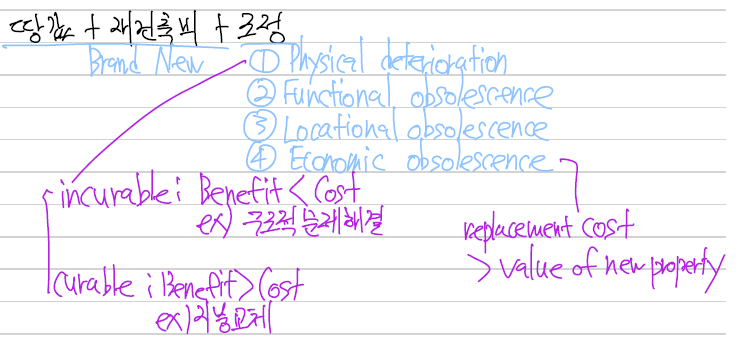 땅값 + 재건축비 + 조정
Brand New
① Physical deterioration
② Functional obsolescence
③ Locational obsolescence
④ Economic obsolescence
incurable : Benefit < Cost
ex) 구조적 문제해결
curable : Benefit > Cost
ex) 지붕교체
replacement cost
> value of new property